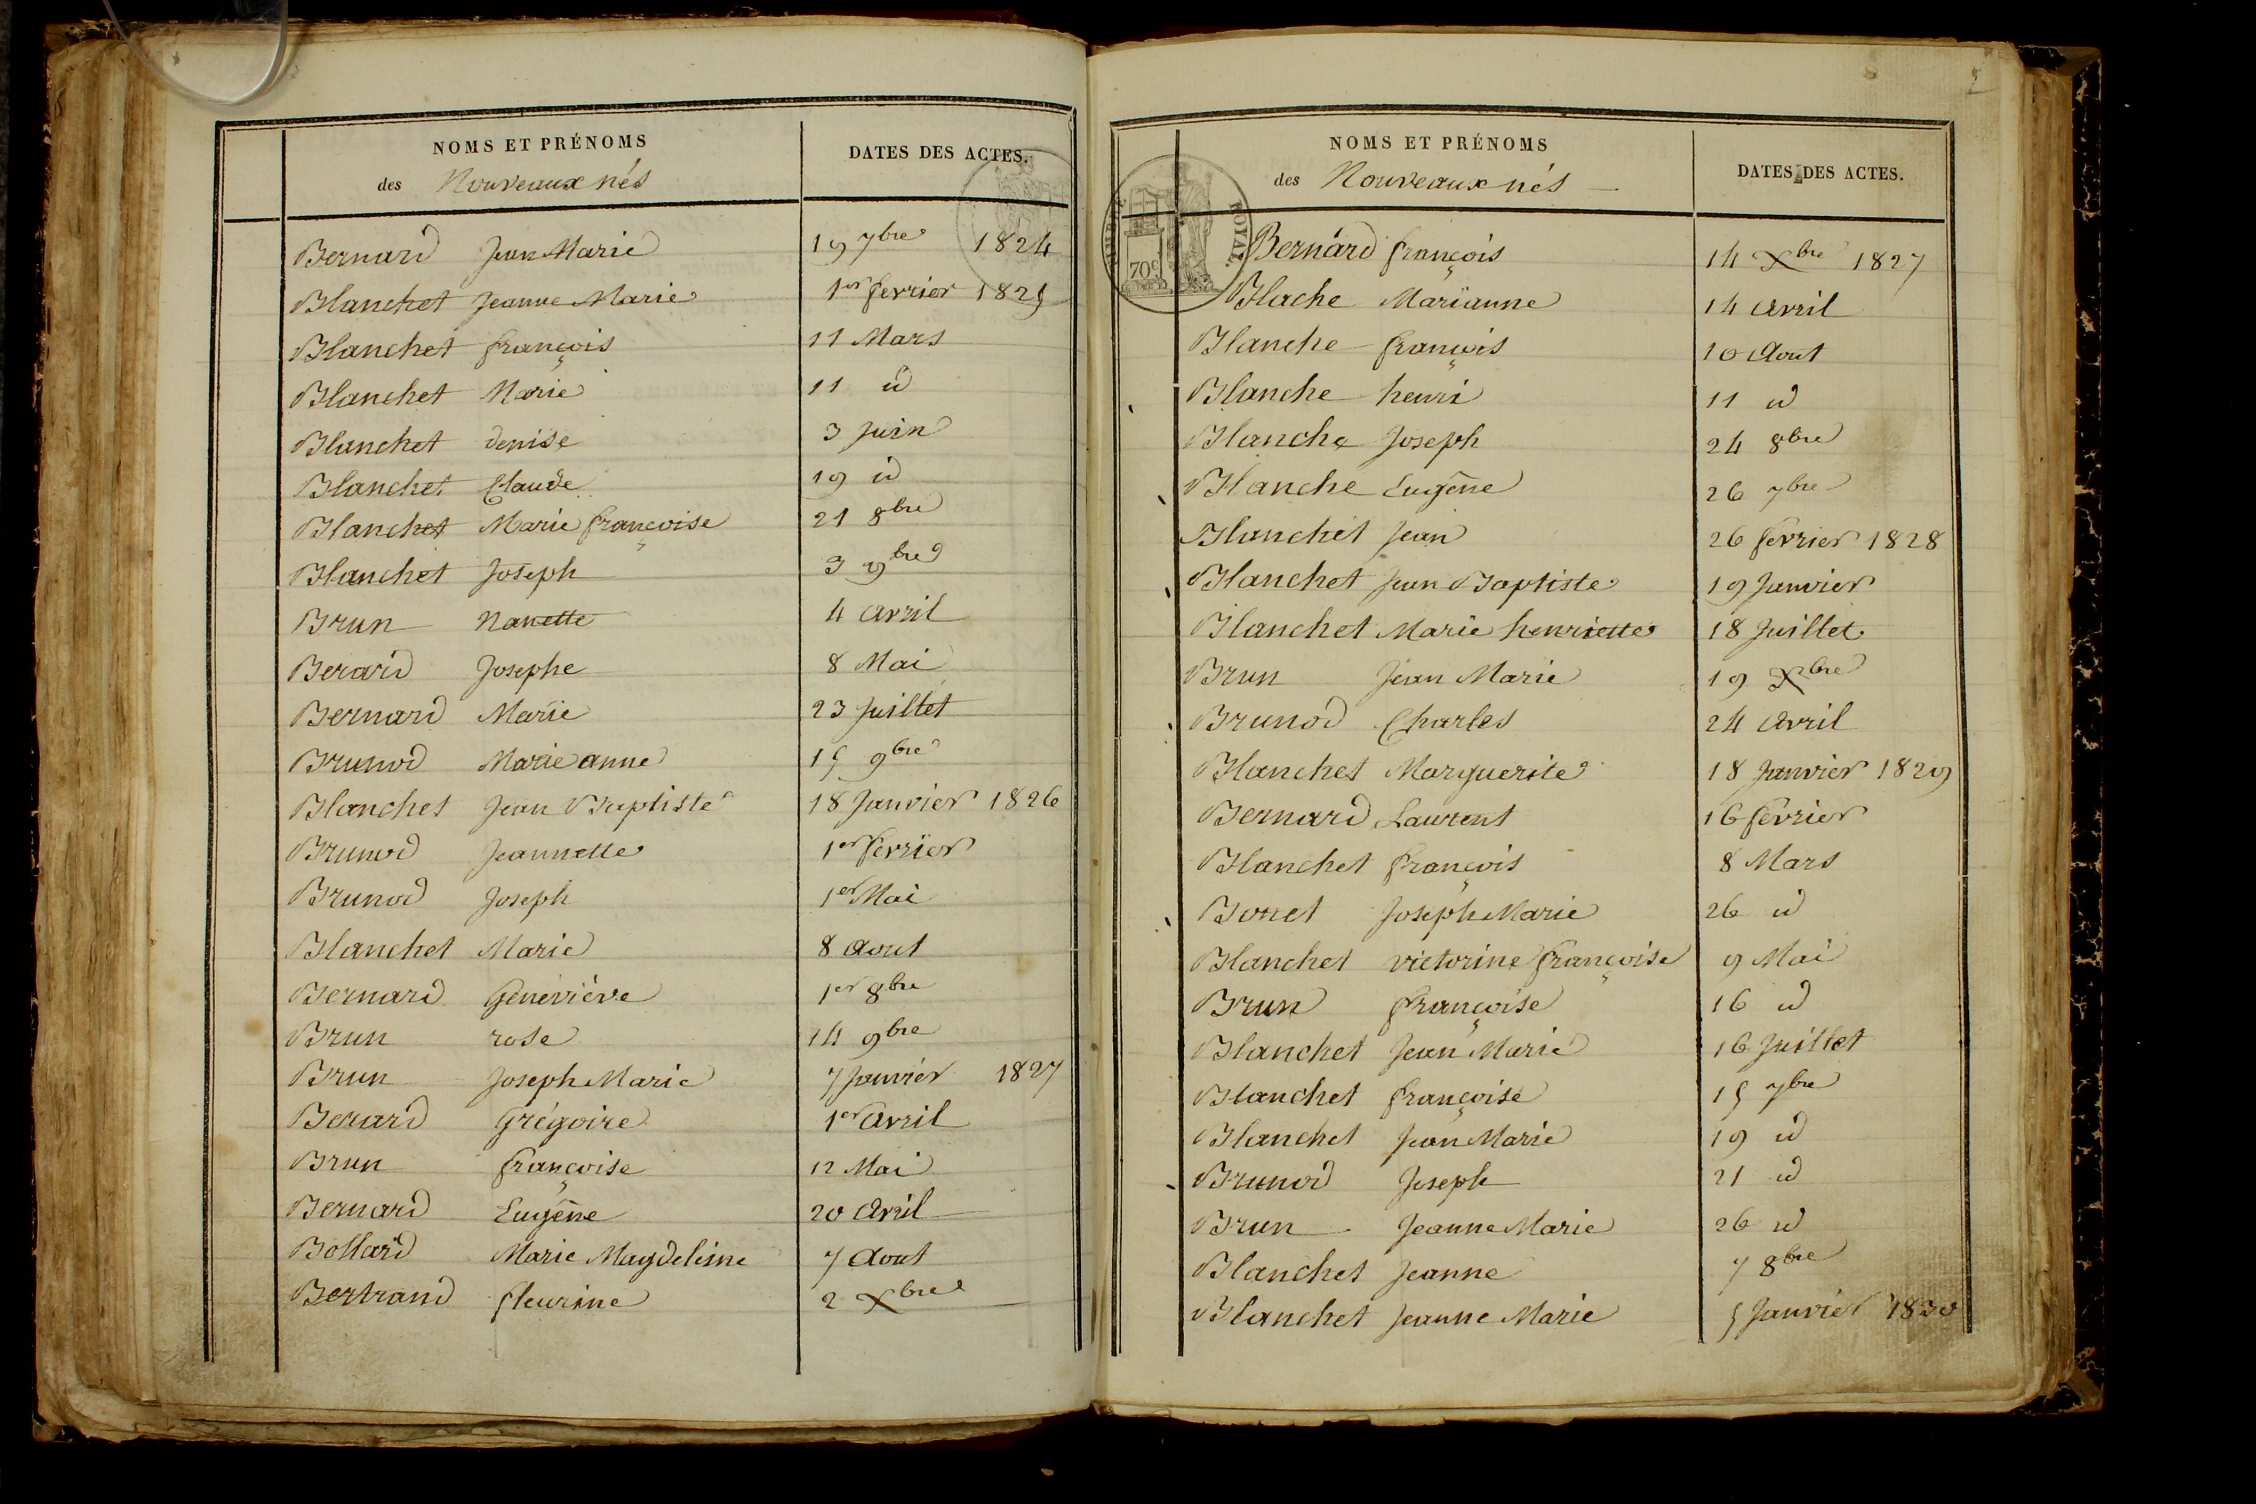 NOMS ET PRÉNOMS
des Nouveaux nés
DATES DES ACTES.
Bernard Jean Marie 19 7bre 1824
Blanchet Jeanne Marie 1er fevrier 1825
Blanchet françois 11 Mars
Blanchet Marie 11 id
Blanchet denise 3 Juin
Blanchet Claude 19 id
Blanchet Marie françoise 21 8bre
Blanchet Joseph 3 9bre
Brun Nanette 4 avril
Berard Josephe 8 Mai
Bernard Marie 23 Juillet
Brunod Marie anne 15 9bre
Blanchet Jean Baptiste 18 Janvier 1826
Brunod Jeannette 1er fevrier
Brunod Joseph 1er Mai
Blanchet Marie 8 aout
Bernard Géneviéve 1er 8bre
Brun rose 14 9bre
Brun Joseph Marie 7 Janvier 1827
Berard Grégoire 1er avril
Brun françoise 12 Mai
Bernard Eugêne 20 avril
Bollard Marie Magdeleine 7 aout
Bertrand fleurine 2 Xbre
5
NOMS ET PRÉNOMS
des Nouveaux nés
DATES DES ACTES.
TIMBRE ROYAL.
70c
Bernard françois 14 Xbre 1827
Blache Marianne 14 avril
Blanche françois 10 Aout
Blanche henri 11 id
Blanche Joseph 24 8bre
Blanche Eugêne 26 7bre
Blanchet Jean 26 fevrier 1828
Blanchet Jean Baptiste 19 Janvier
Blanchet Marie henriette 18 Juillet
Brun Jean Marie 19 Xbre
Brunod Charles 24 avril
Blanchet Marguerite 18 Janvier 1829
Bernard Laurent 16 fevrier
Blanchet françois 8 Mars
Bonet Joseph Marie 26 id
Blanchet victorine françoise 9 Mai
Brun françoise 16 id
Blanchet Jean Marie 16 Juillet
Blanchet françoise 15 7bre
Blanchet Jean Marie 19 id
Brunod Joseph 21 id
Brun Jeanne Marie 26 id
Blanchet Jeanne 7 8bre
Blanchet Jeanne Marie 5 Janvier 1830